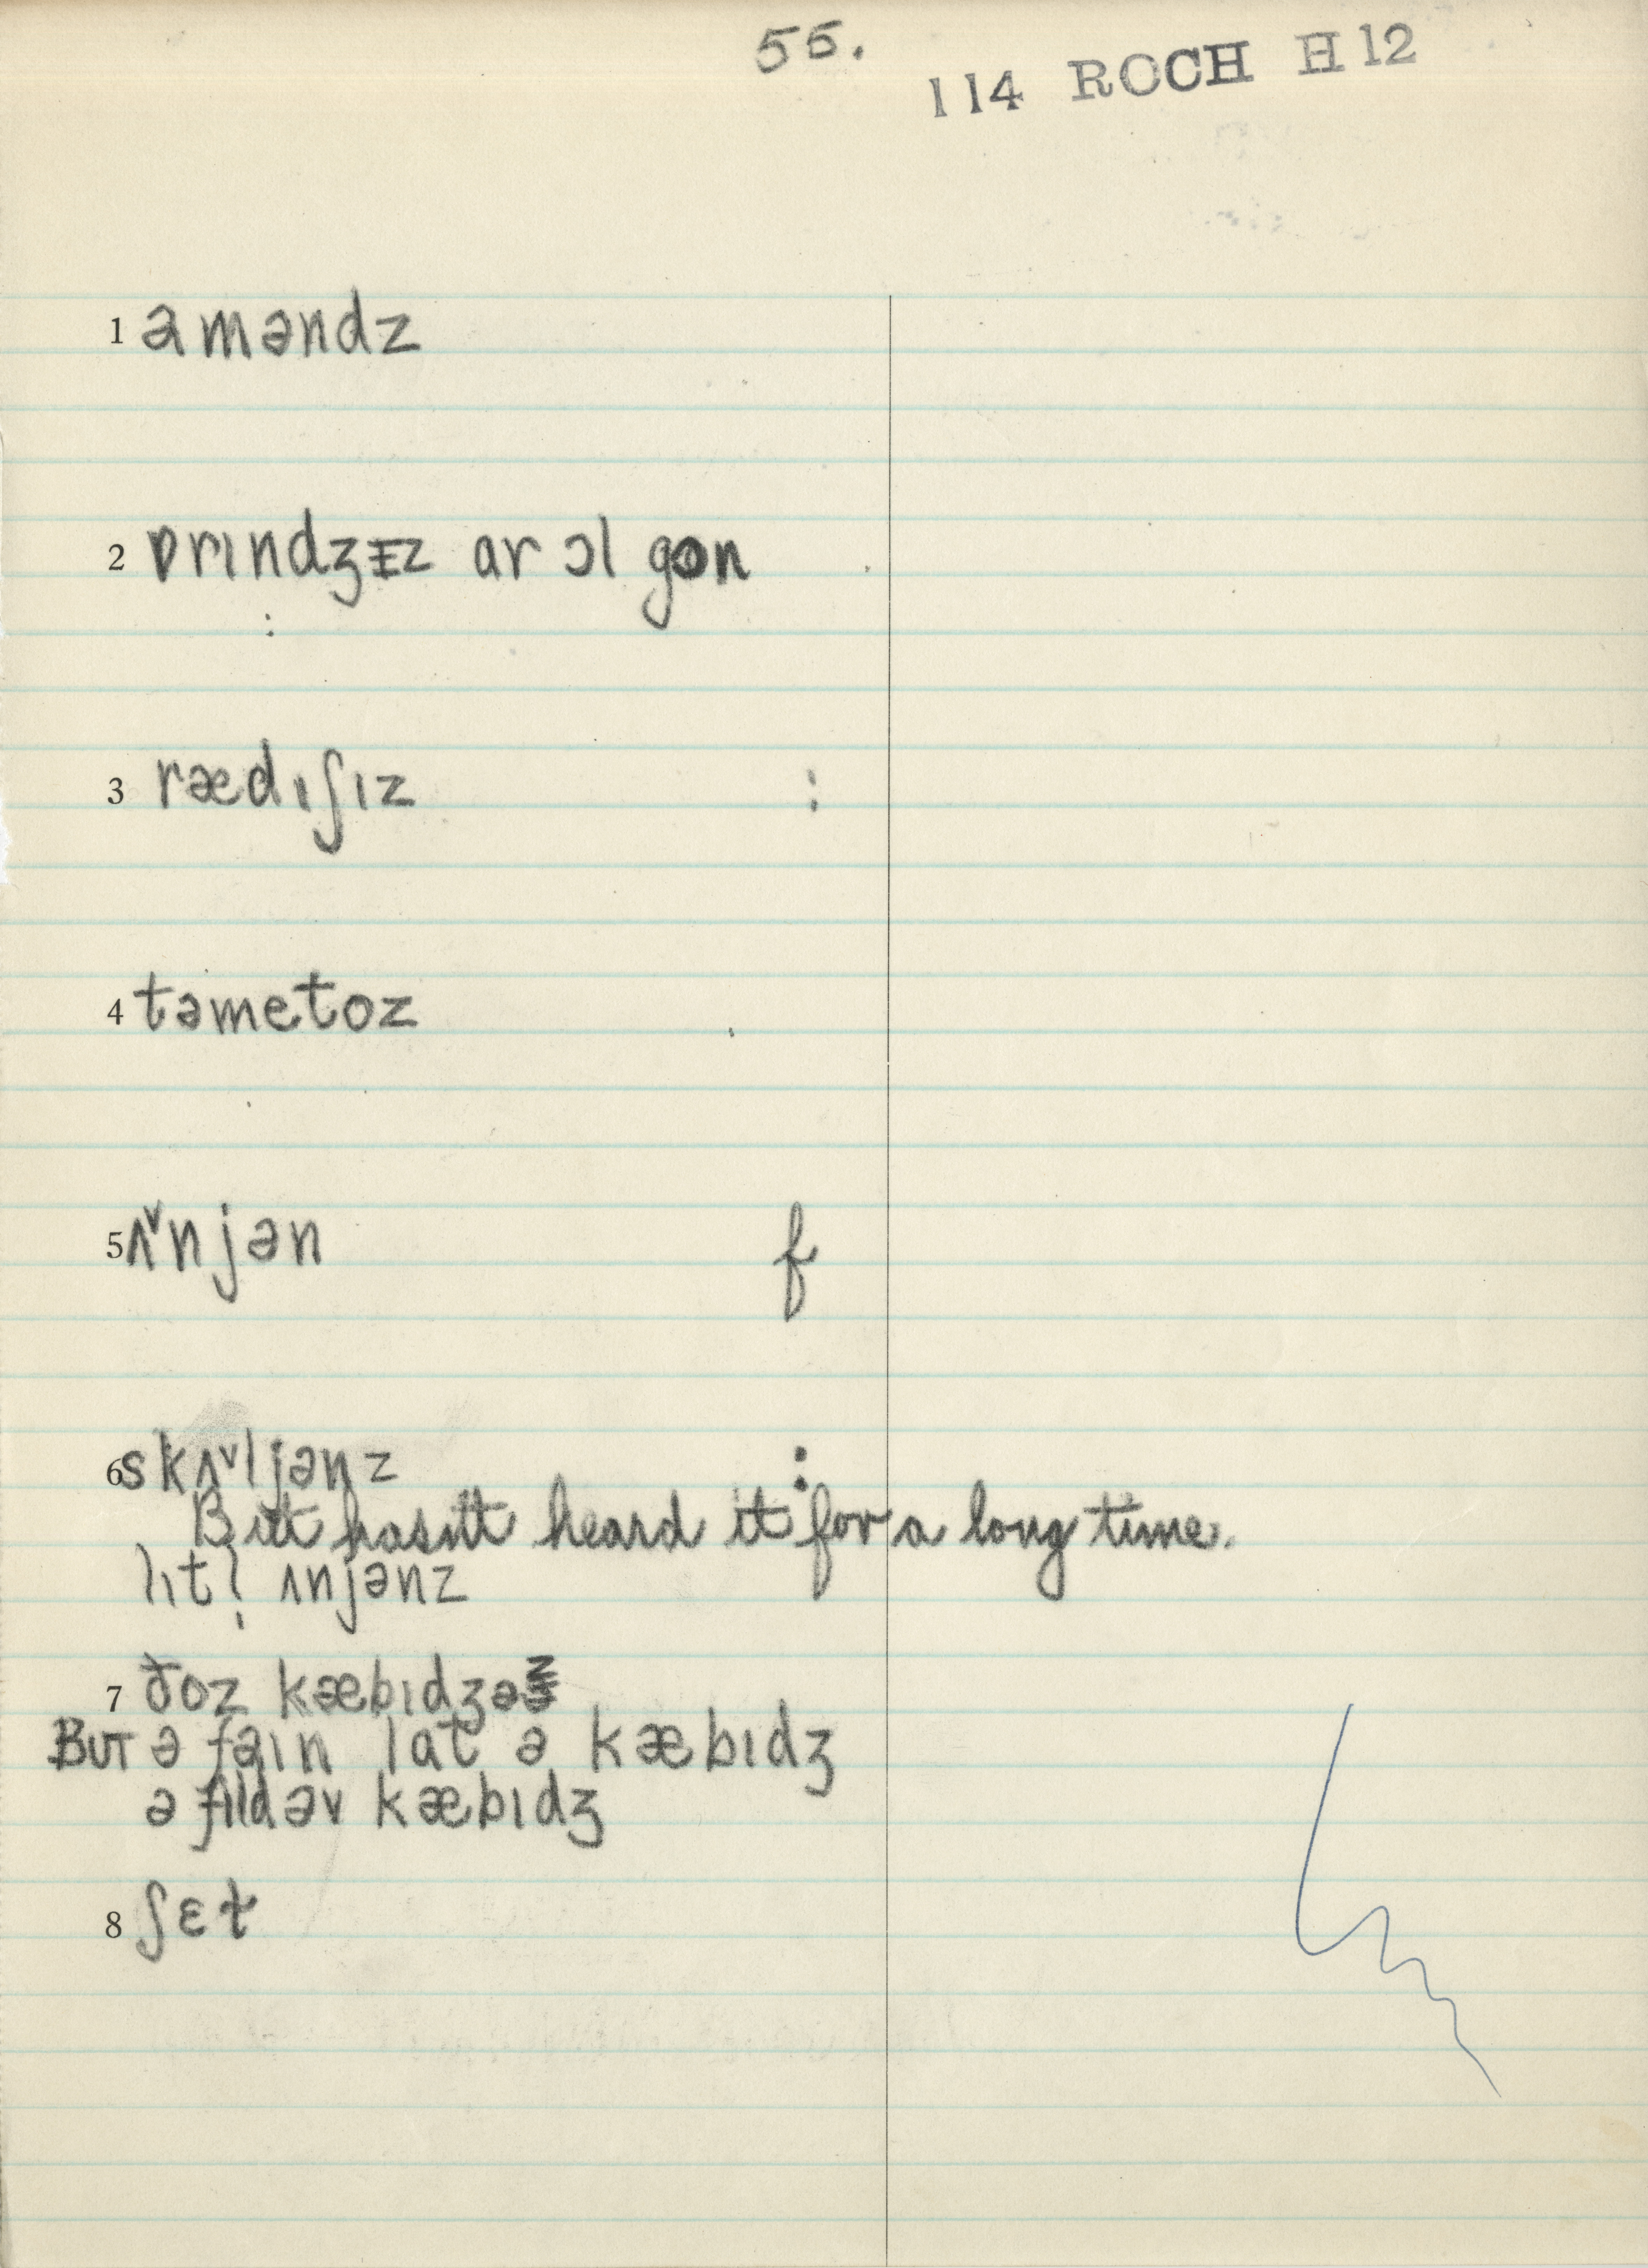 55.
114 ROCH H12
1 aməndz
2 ɒrɪndʒɪz ar ɔl gɒn
:
3 rædɪʃɪz :
4 təmetoz
5 ʌ˅njən f
6 skʌ˅ljənz :
But hasn't heard it for a long time.
lɪtl̩ ʌnjənz
7 ðoz kæbɪdʒəz
BUT ə faɪn lat ə kæbɪdʒ
ə fild əv kæbɪdʒ
8 ʃɛt